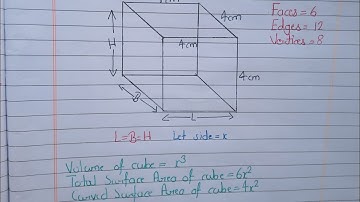 Faces = 6
Edges = 12
Vertices = 8
4cm
4cm
4cm
H
B
L
L=B=H
Let side = x
Volume of cube = x³
Total Surface Area of cube = 6x²
Curved Surface Area of cube = 4x²